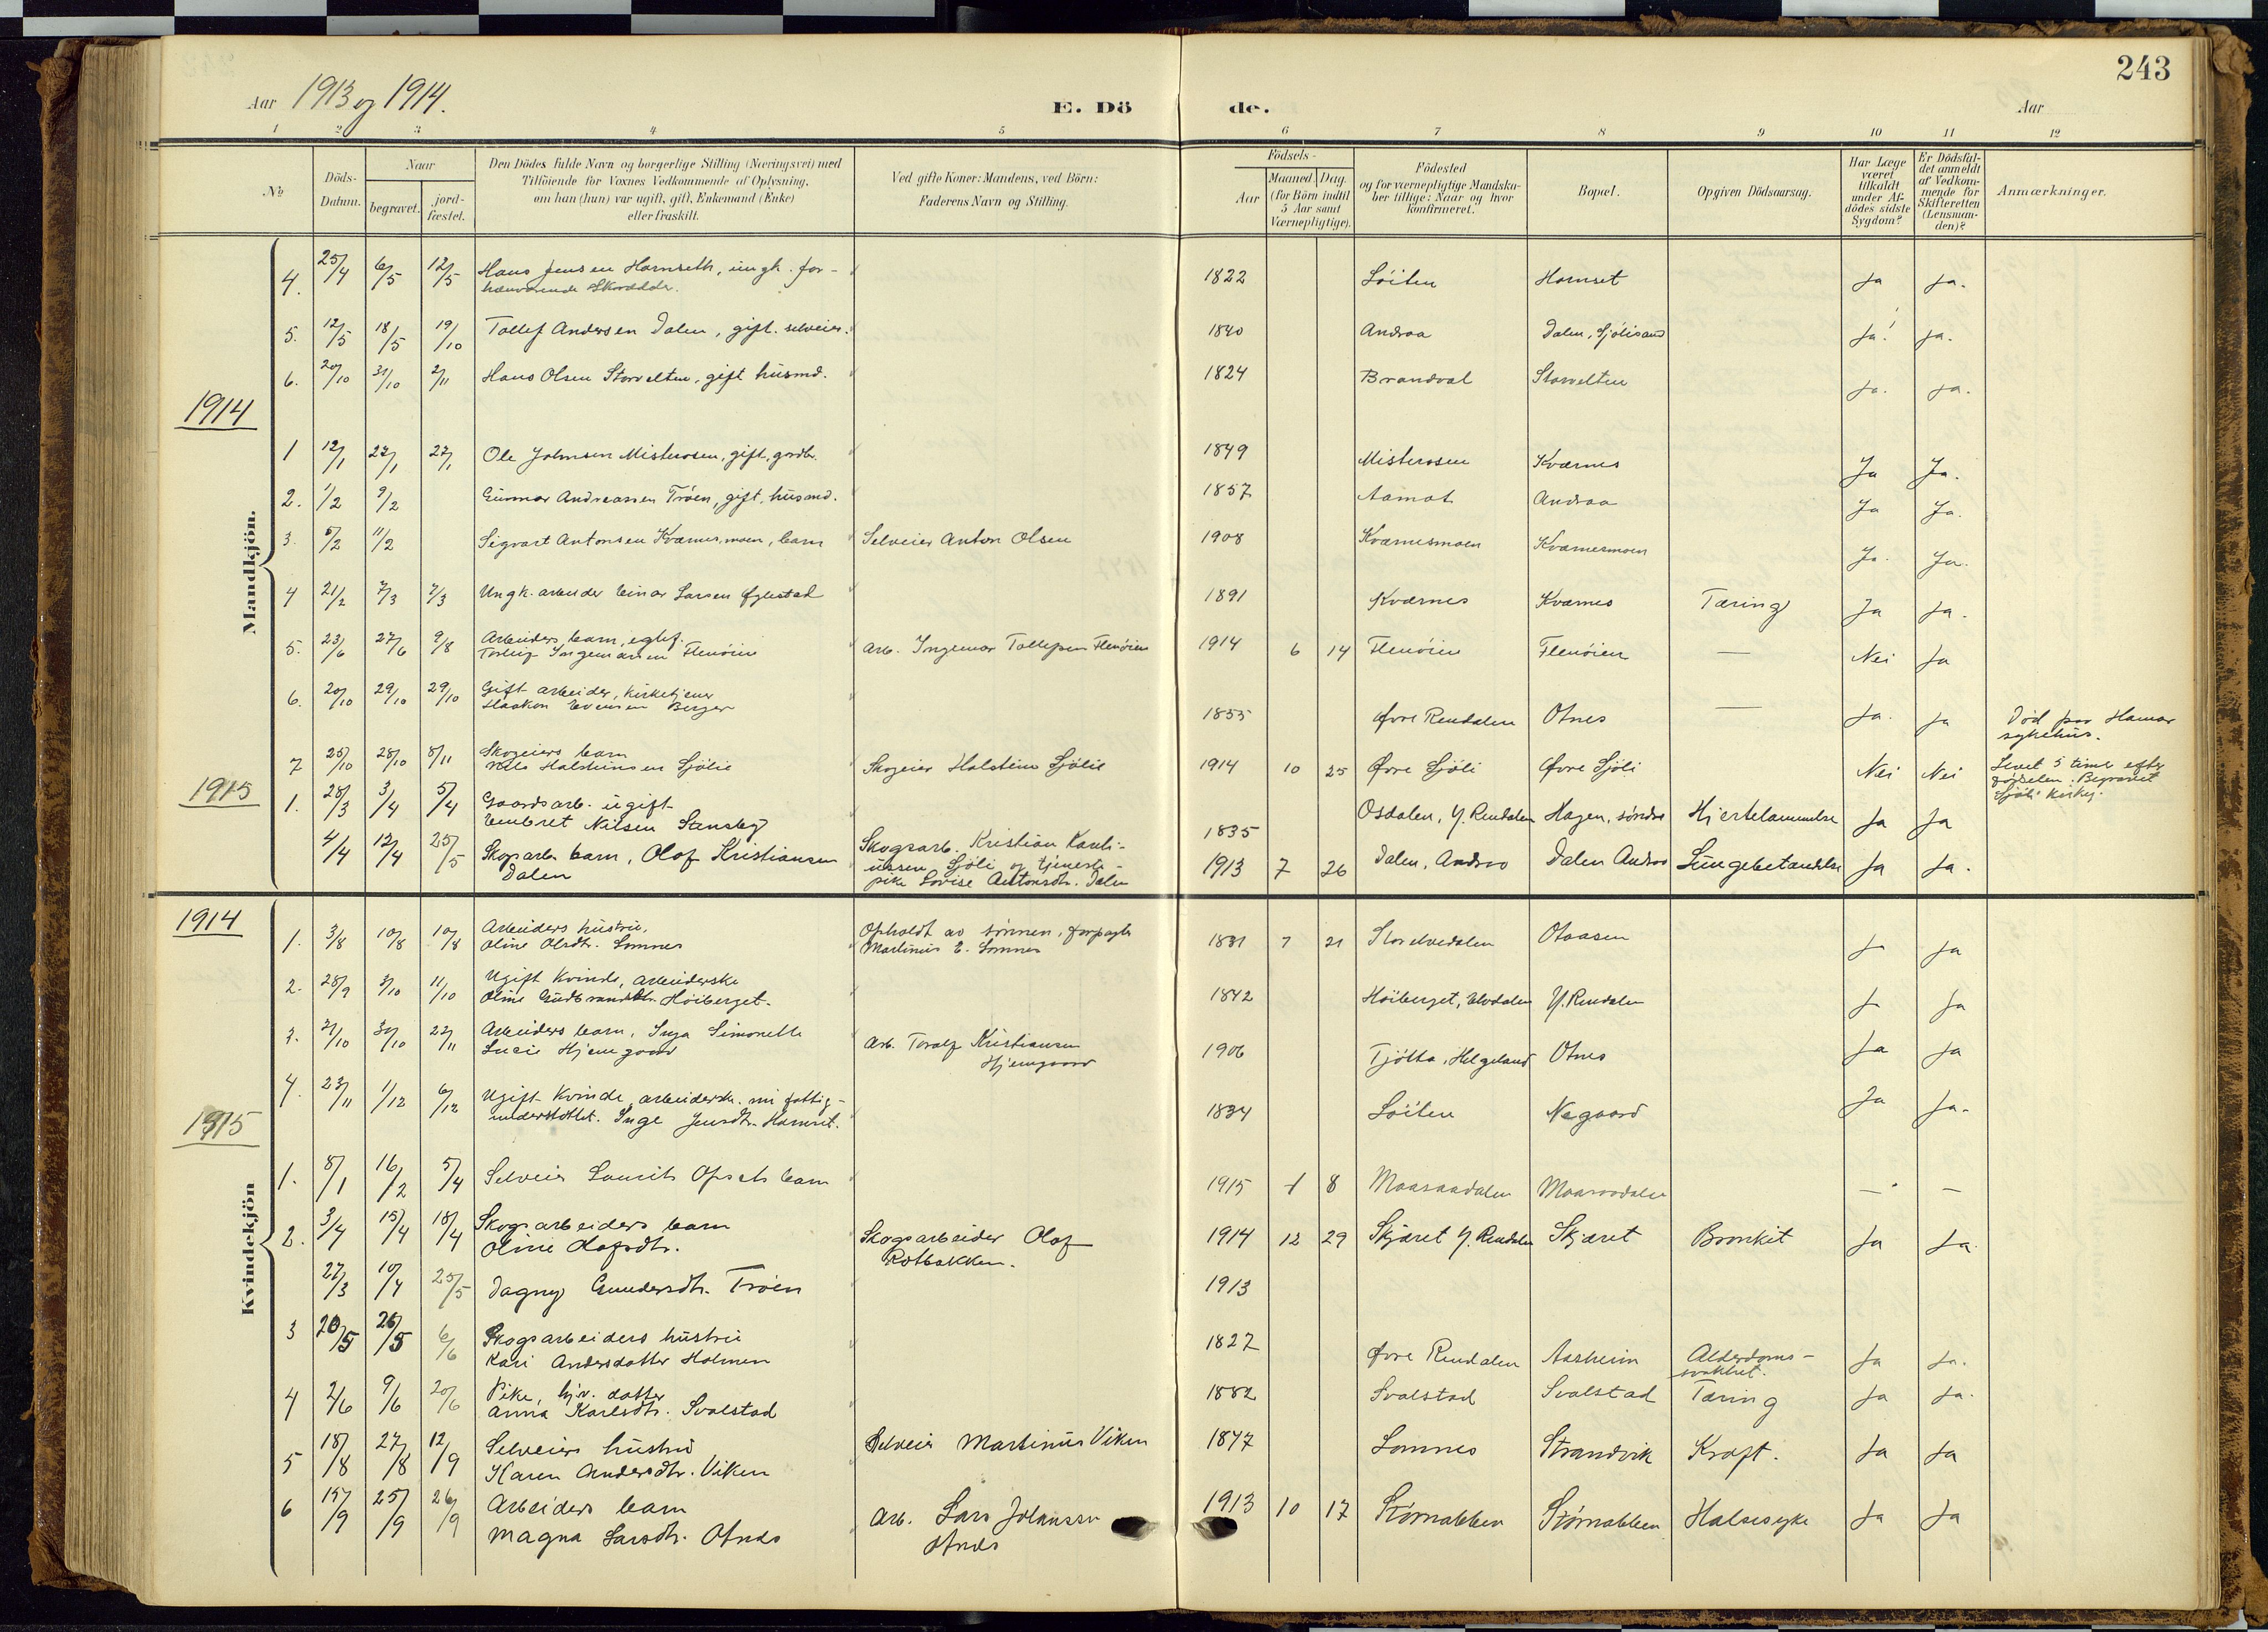 243
Aar 1913 og 1914.
E. Dö de.
Aar
1 2 3 4 5 6 7 8 9 10 11 12
No
Döds-Datum.
Naar
begravet.
jord-fæstet.
Den Dödes fulde Navn og borgerlige Stilling (Næringsvei) med
Tilföiende for Voxnes Vedkommende af Oplysning,
om han (hun) var ugift, gift, Enkemand (Enke)
eller fraskilt.
Ved gifte Koner: Mandens, ved Börn:
Faderens Navn og Stilling.
Födsels-
Aar
Maaned Dag
(for Börn indtil
5 Aar samt
Værnepligtige).
Födested
og for værnepligtige Mandska-
ber tillige: Naar og hvor
konfirmeret.
Bopæl.
Opgiven Dödsaarsag.
Har Læge
været
tilkaldt
under Af-
dödes sidste
Sygdom?
Er Dödsfal-
det anmeldt
af Vedkom-
mende for
Skifteretten
(Lensman-
den)?
Anmærkninger.
Mandkjön.
4. 25/4 6/5 12/5 Hans Jensen Hornseth, ungk. for-
henværende Skrædder. 1822 Löiten Hornset Ja Ja.
5. 12/5 18/5 19/10 Tollef Andersen Dalen, gift. selveier. 1840 Andraa Dalen, Sjölisand Ja. Ja.
6. 20/10 31/10 2/11 Hans Olsen Storvelten, gift husmd. 1824 Brandval Storvelten Ja. Ja.
1914
1 12/1 27/1 27/1 Ole Johnsen Misterosen, gift, gordbr. 1849 Misterosen Kværnes Ja Ja.
2. 1/2 9/2 Gunnar Andreassen Tröen, gift, husmd. 1857 Aamot Andraa Ja Ja.
3. 5/2 11/2 Sigvart Antonsen Kværnesmoen, barn Selveier Anton Olsen 1908 Kværnesmoen Kværnesmoen Ja. Ja.
4 21/2 7/3 7/3 Ungk. arbeider Einar Larsen 1891 Kværnes Kværnes Tæring Ja Ja.
5. 23/6 27/6 9/8 Arbeiders barn, egtef.
Ingemarsen Flenöien Arb. Ingemar Tollefsen Flenöien 1914 6 14 Flenöien Flenöien — Nei Ja
6. 20/10 29/10 29/10 Gift arbeider, Kirketjener
Haakon Evensen Berger 1855 Øvre Rendalen Otnes — Ja. Ja Död paa Hamar
sykehus.
7 25/10 28/10 8/11 Skogeiers barn
Nils Halsteinsen Sjölie Skogeier Halstein Sjölie 1914 10 25 Øvre Sjöli Øvre Sjöli Nei Nei Levet 5 timer efter
födselen. Begravet
Sjöli kirkeg.
1915
1. 28/3 3/4 5/4 Gaardsarb. ugift
Embret Nilsen Stensby 1835 Osdalen, Y. Rendalen Hagen, söndre Hjertelammelse Ja Ja
4/4 12/4 25/5 Skogsarb. barn, Olof Kristiansen
Dalen Skogsarb. Kristian Kareli-
ussen Sjöli og tjeneste-
pike Lovise Antonsdtr. Dalen 1913 7 26 Dalen, Andraa Dalen Andraa Lungebetændelse Ja Ja.
Kvindekjön
1914
1. 3/8 10/8 10/8 Arbeiders hustru,
Oline Olsdtr. Lomnes Opholdt av sönnen, forpagter
Martinius E. Lomnes 1831 7 21 Storelvedalen Otaasen Ja Ja
2. 28/9 3/10 11/10 Ugift Kvinde, arbeiderske
Oline Gudbrandsdtr. Höiberget. 1842 Höiberget, Elvdalen Y. Rendalen Ja Ja
3. 21/10 30/10 22/11 Arbeiders barn, Inga Simonette
Lucie Hjemgaard Arb. Toralf Kristiansen
Hjemgaard 1906 Tjötta, Helgeland Otnes Ja Ja
4. 23/11 1/12 6/12 Ugift Kvinde, arbeiderske. nu fattig-
understöttet. Inge Jensdtr. Hornset. 1834 Löiten Negaard Ja Ja.
1915
1. 8/1 16/2 5/4 Selveier Laurits Opsets barn 1915 1 8 Maaraadalen Maaraadalen — —
2. 3/4 15/4 18/4 Skogsarbeiders barn
Oline Olofsdtr. Skogsarbeider Olof
Rotbakken. 1914 12 29 Skjæret Y. Rendalen Skjæret Bronkit Ja Ja
27/3 10/4 25/5 Dagny Gundersdtr. Tröen 1913
3 20/5 26/5 6/6 Skogsarbeiders hustru
Kari Andersdatter Holmen 1827 Øvre Rendalen Aasheim Alderdoms-
svakhet. Ja Ja.
4 2/6 9/6 20/6 Pike, hjv. datter
Anna Karlsdtr. Svalstad 1882 Svalstad Svalstad Tæring Ja Ja.
5 18/8 27/8 12/9 Selveiers hustru
Karen Andersdtr. Viken Selveier Martinius Viken 1847 Lomnes Strandvik Kræft. Ja Ja
6 15/9 25/9 26/9 Arbeiders barn
Magna Larsdtr. Otnes Arb. Lars Johanssen
Otnes 1913 10 17 Störnabben Störnabben Halsesyke Ja Ja